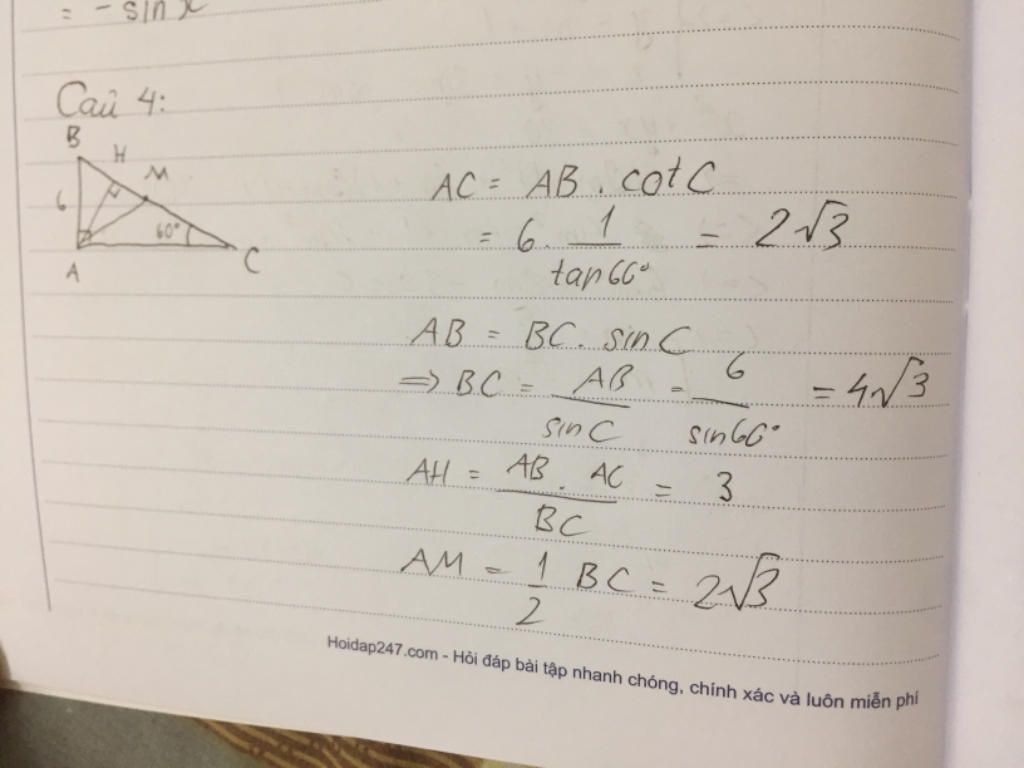 = - sin x
Câu 4:
B
H
M
6
60°
A
C
AC = AB . cot C
= 6. 1/tan60° = 2√3
AB = BC . sin C
=> BC = AB/sin C = 6/sin60° = 4√3
AH = AB . AC/BC = 3
AM = 1/2 BC = 2√3
Hoidap247.com - Hỏi đáp bài tập nhanh chóng, chính xác và luôn miễn phí